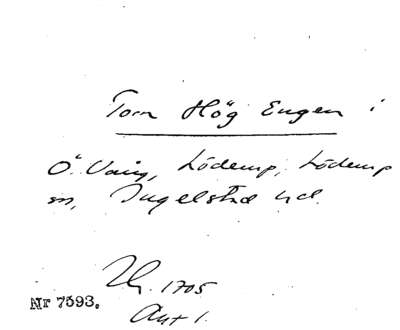 Torn Hög Engen i
Ö. Vang, Lödemp, Lödemp
sn, Ingelstad hd.
1705
Akt 1.
Nr 7593.